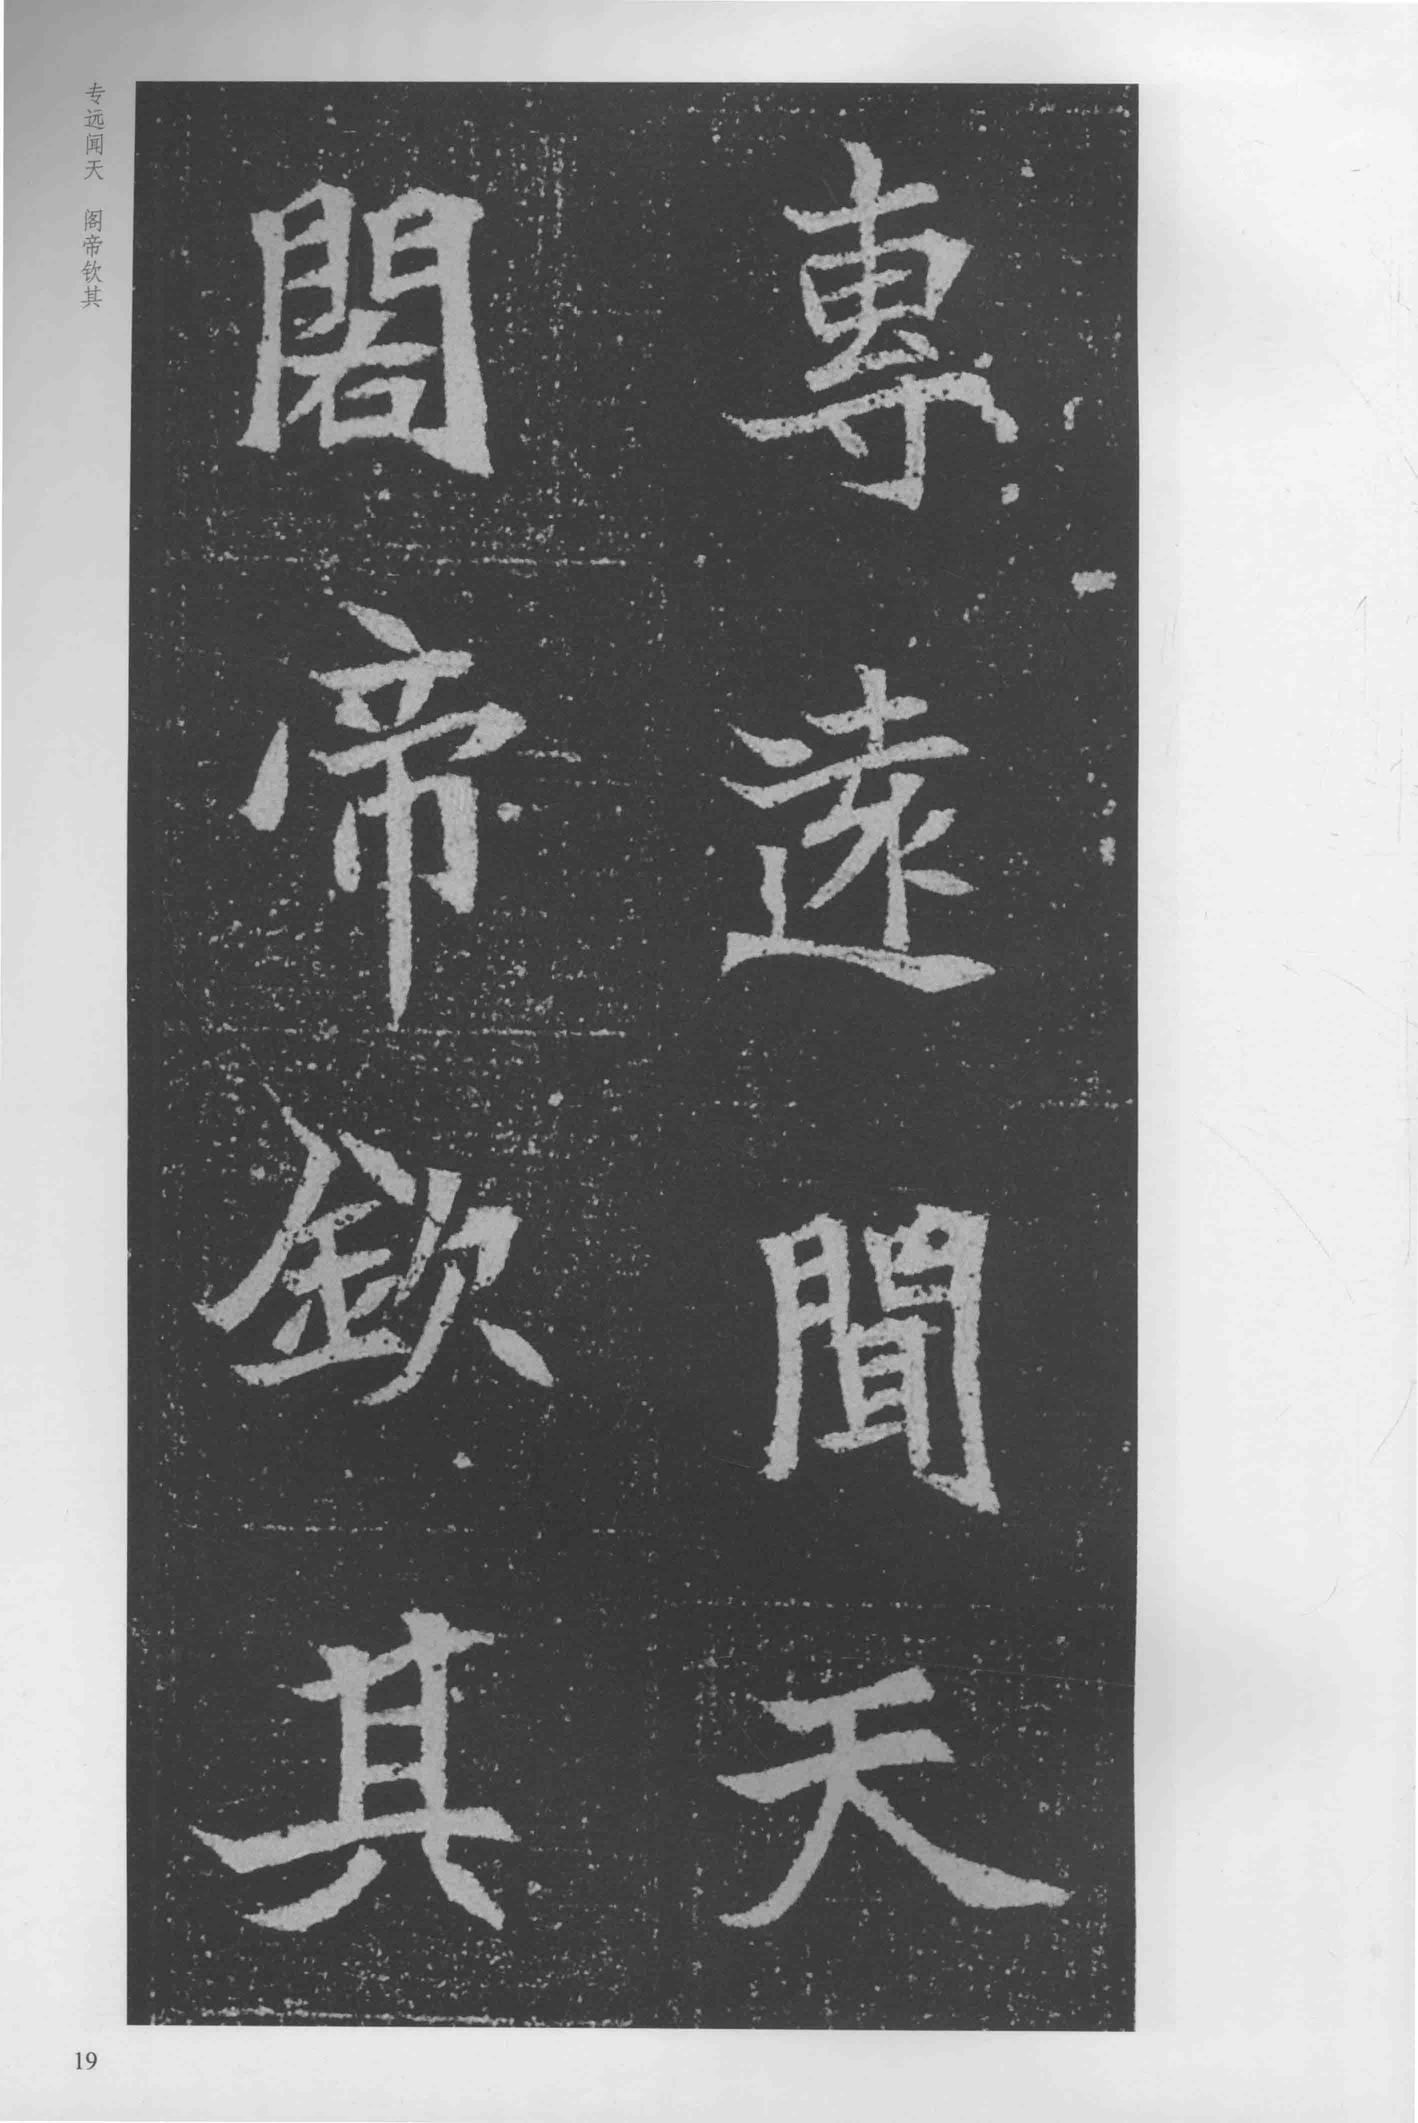 專遠聞天
閣帝欽其
专远闻天 阁帝钦其
19